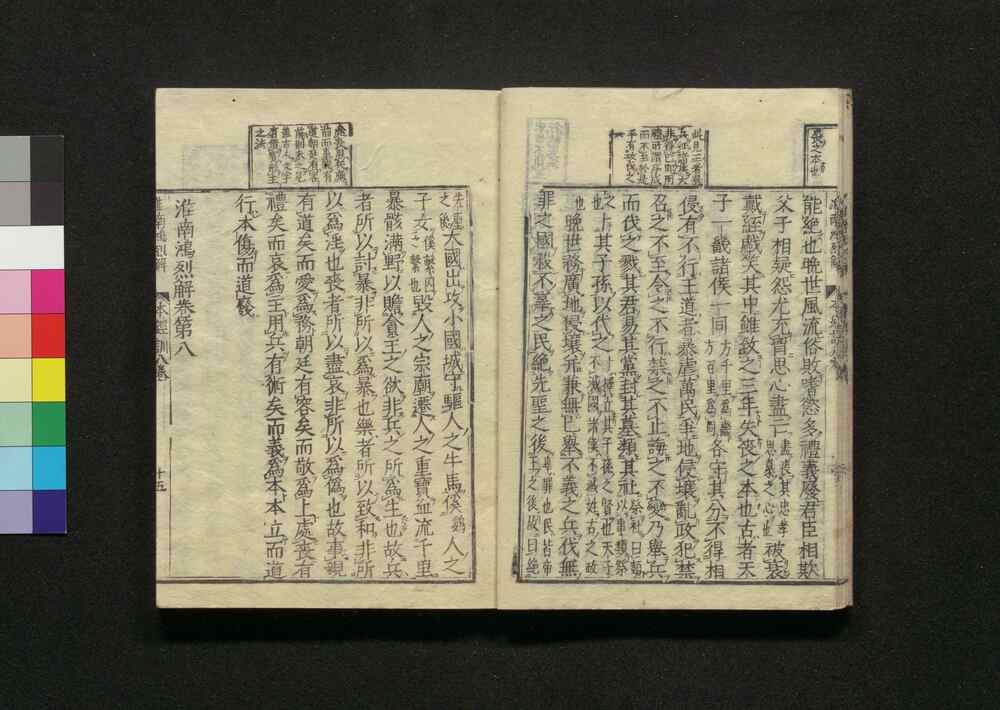 能絶也晩世風流俗敗嗜慾多禮義廢君臣相欺
父子相疑怨尤充胷思心盡亡盡喪其忠孝思義之心也被衰
戴絰戲笑其中雖致之三年失喪之本也古者天
子一畿諸侯一同方千里爲畿方百里爲同各守其分不得相
侵有不行王道者暴虐萬民爭地侵壤亂政犯禁
召之不至令之不行禁之不止誨之不變乃舉兵
而伐之戮其君易其黨封其墓類其社祭社曰類以事類祭
之卜其子孫以代之不滅國諸侯不滅姓古之故
也晩世務廣地侵壤幷兼無已舉不義之兵伐無
罪之國殺不辜之民絶先聖之後帝王之後故曰絶
先聖之後大國出攻小國城守驅人之牛馬傒人之
子女傒繫囚之繫也毀人之宗廟遷人之重寶血流千里
暴骸滿野以贍貪主之欲非兵之所爲生也故兵
者所以討暴非所以爲暴也樂者所以致和非所
以爲淫也喪者所以盡哀非所以爲僞也故事親
有道矣而愛爲務朝廷有容矣而敬爲上處喪有
禮矣而哀爲主用兵有術矣而義爲本本立而道
行本傷而道廢
淮南鴻烈解卷第八
十五